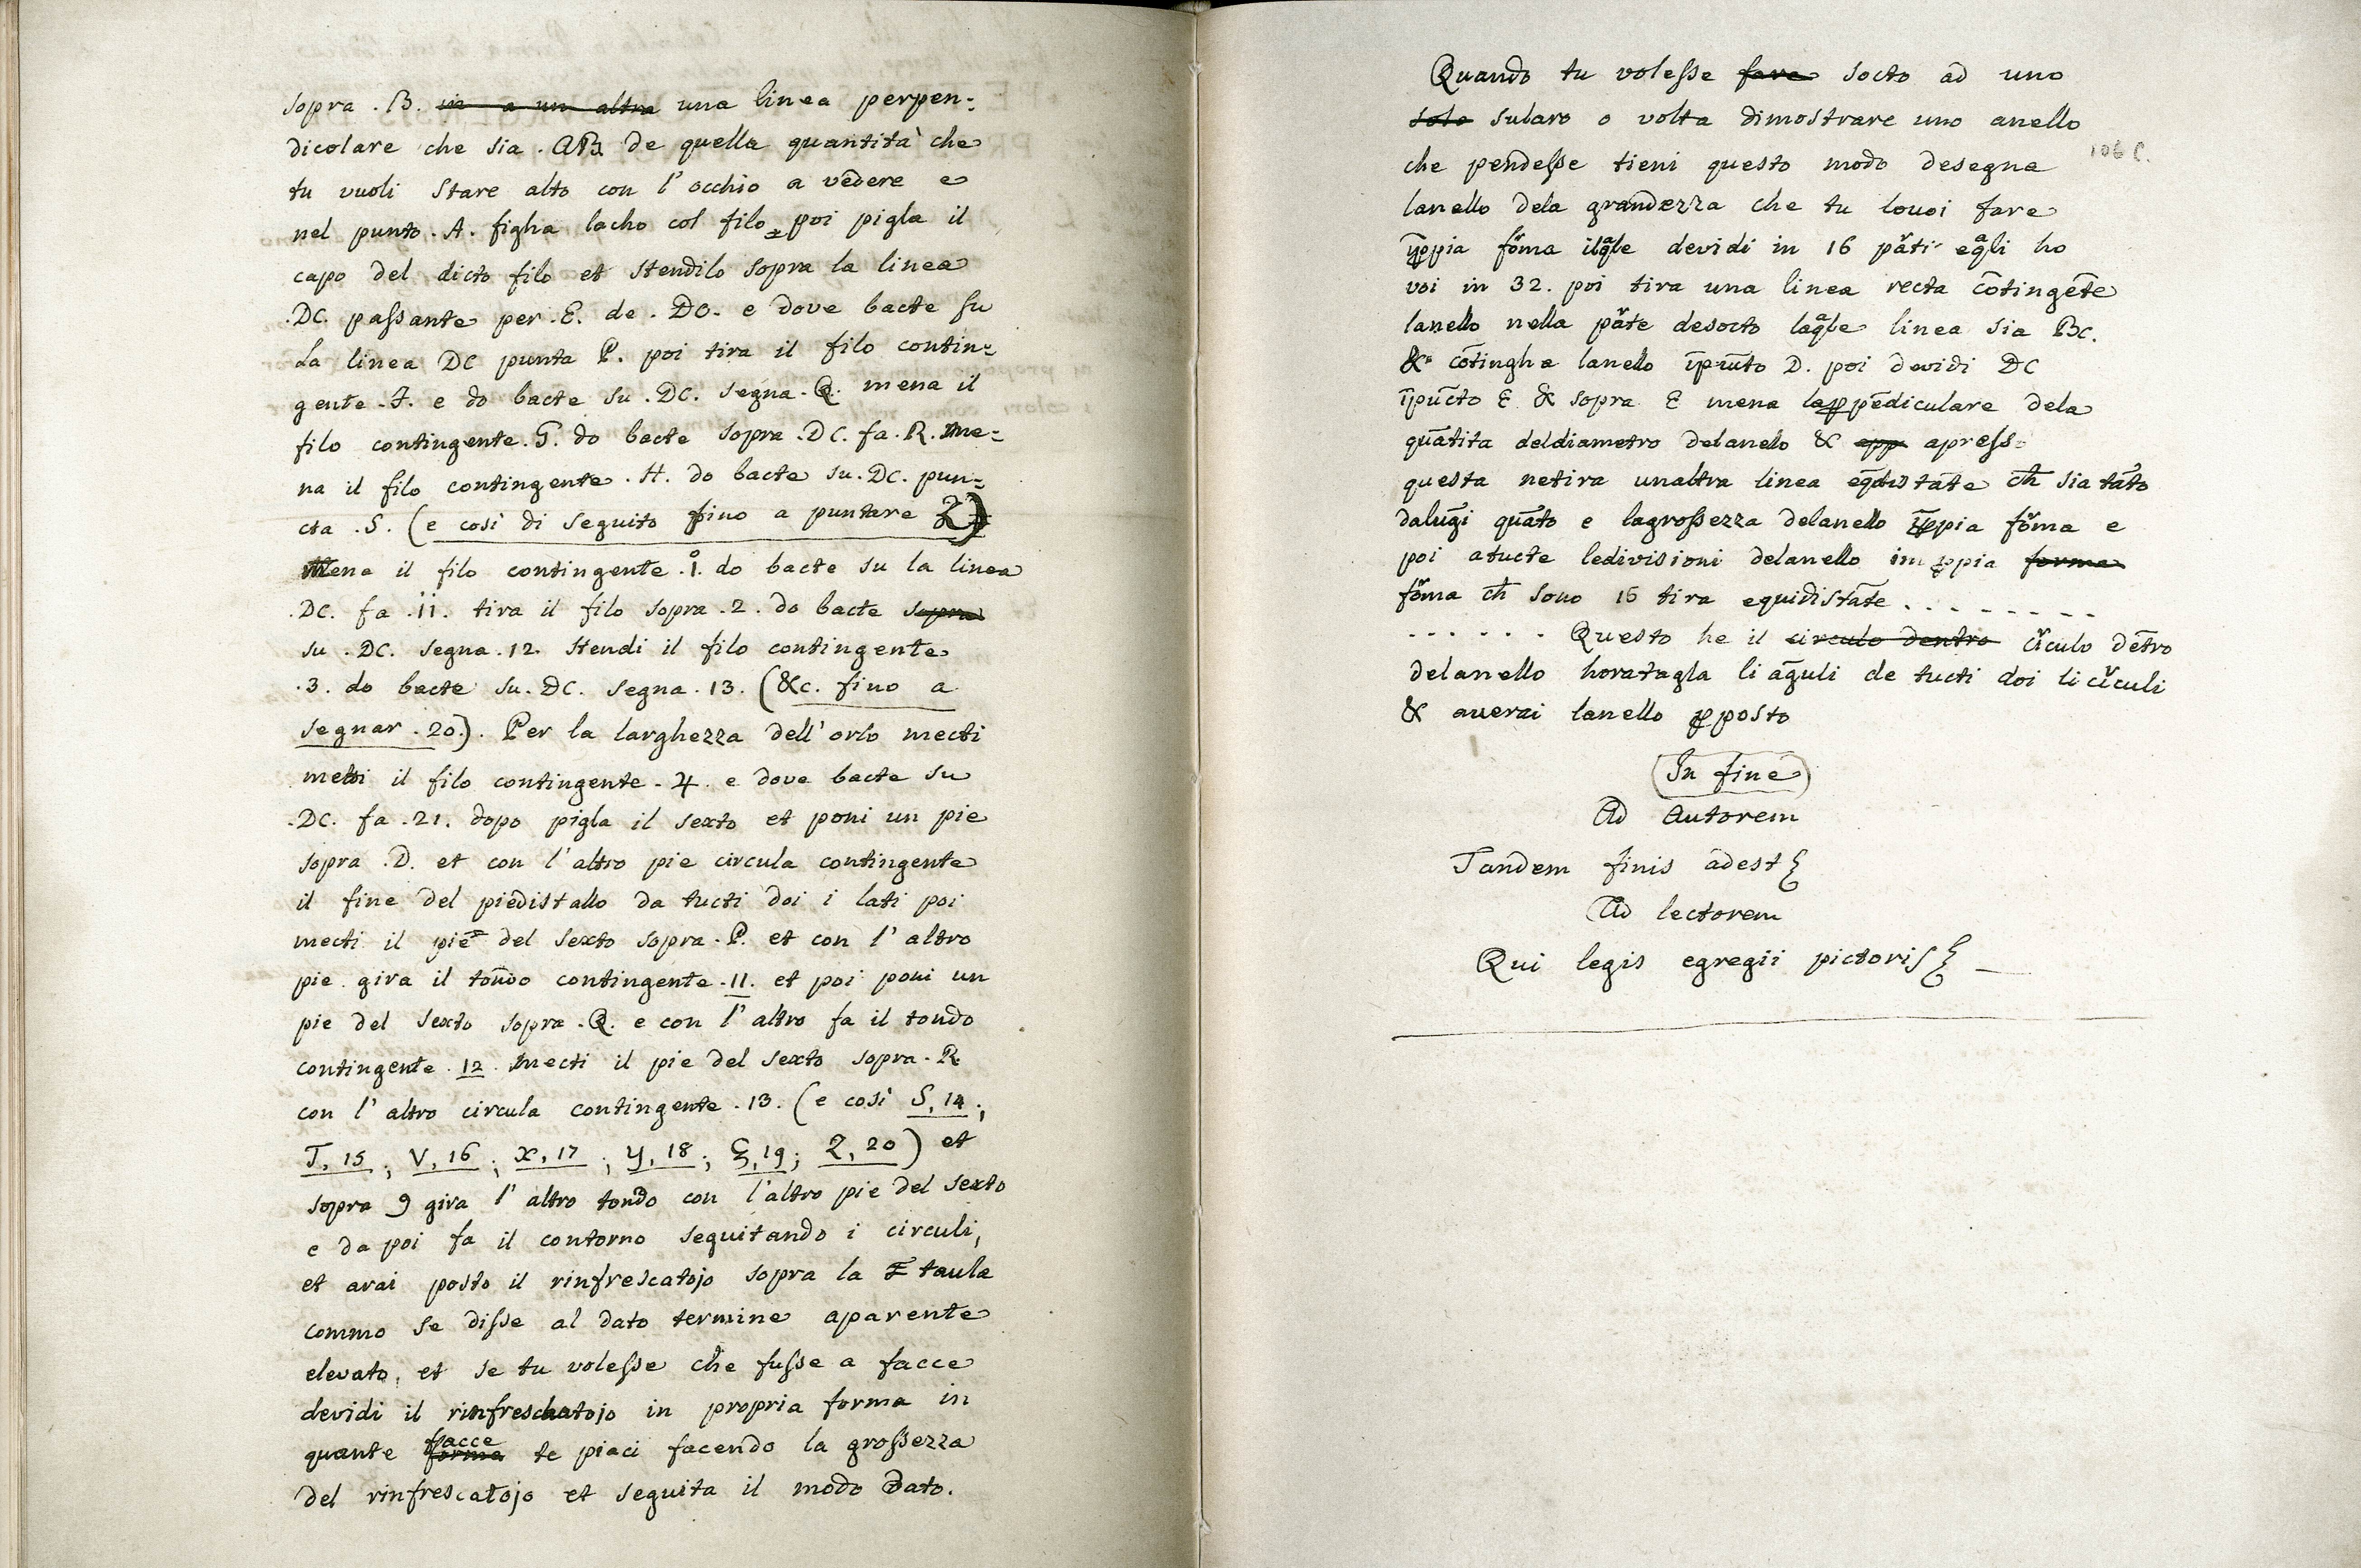 sopra . B. in a un altra una linea perpen:
dicolare che sia . AB de quella quantità che
tu vuoli stare alto con l'occhio a vedere e
nel punto . A. figha lacho col filo poi pigla il
capo del dicto filo et stendilo sopra la linea
.DC. passante per . E. de . DO. e dove bacte su
la linea DC punta P. poi tira il filo contin:
gente . F. e do bacte su . DC. segna . Q. mena il
filo contingente . G. do bacte sopra . DC. fa . R. me:
na il filo contingente . H. do bacte su . DC. pun:
cta . S. (e così di seguito fino a puntare Z)
Mena il filo contingente . i. do bacte su la linea
.DC. fa . 11. tira il filo sopra . 2. do bacte sopra
su . DC. segna . 12. stendi il filo contingente
.3. do bacte su . DC. segna . 13. (&c. fino a
segnar . 20.). Per la larghezza dell'orlo mecti
metti il filo contingente . ♃. e dove bacte su
.DC. fa . 21. dopo pigla il sexto et poni un pie
sopra . D. et con l'altro pie circula contingente
il fine del piedistallo da tucti doi i lati poi
mecti il pie del sexto sopra . P. et con l'altro
pie gira il tondo contingente . 11. et poi poni un
pie del sexto sopra . Q. e con l'altro fa il tondo
contingente . 12. mecti il pie del sexto sopra . R
con l'altro circula contingente . 13. (e così S, 14 ;
T, 15 ; V, 16 ; X, 17 ; Y, 18 ; ξ, 19 ; Z, 20 ) et
sopra 9 gira l'altro tondo con l'altro pie del sexto
e da poi fa il contorno seguitando i circuli,
et arai posto il rinfrescatojo sopra la taula
commo se disse al dato termine aparente
elevato, et se tu volesse che fusse a facce
devidi il rinfreschatojo in propria forma in
quante forma facce te piaci facendo la grossezza
del rinfrescatojo et seguita il modo dato.
Quando tu volesse fare socto ad uno
solo sularo o volta dimostrare uno anello
106 C.
che pendesse tieni questo modo desegna
lanello dela grandezza che tu louoi fare
ī ꝓpia foma ilqle devidi in 16 pati eqli ho
voi in 32. poi tira una linea recta cōtingēte
lanello nella pate desocto laqle linea sia BC.
& cōtingha lanello īpūto D. poi devidi DC
īpūcto E & sopra E mena la ꝑpēdiculare dela
quātita deldiametro delanelo & app apress:
questa netira unaltra linea eqdistāte ch̄ sia tāto
dalūgi quāto e lagrossezza delanello ī ꝓpia foma e
poi atucte ledivisioni delanello im ꝓpia forma
foma ch̄ sono 16 tira equidistāte . . . . . . . .
. . . . . . Questo he il circulo dentro ciculo dētro
delanello horatagla li āguli de tucti doi li ciculi
& auerai lanello ꝓposto
(In fine)
Ad Autorem
Tandem finis adest ξ
Ad lectorem
Qui legis egregii pictoris ξ —